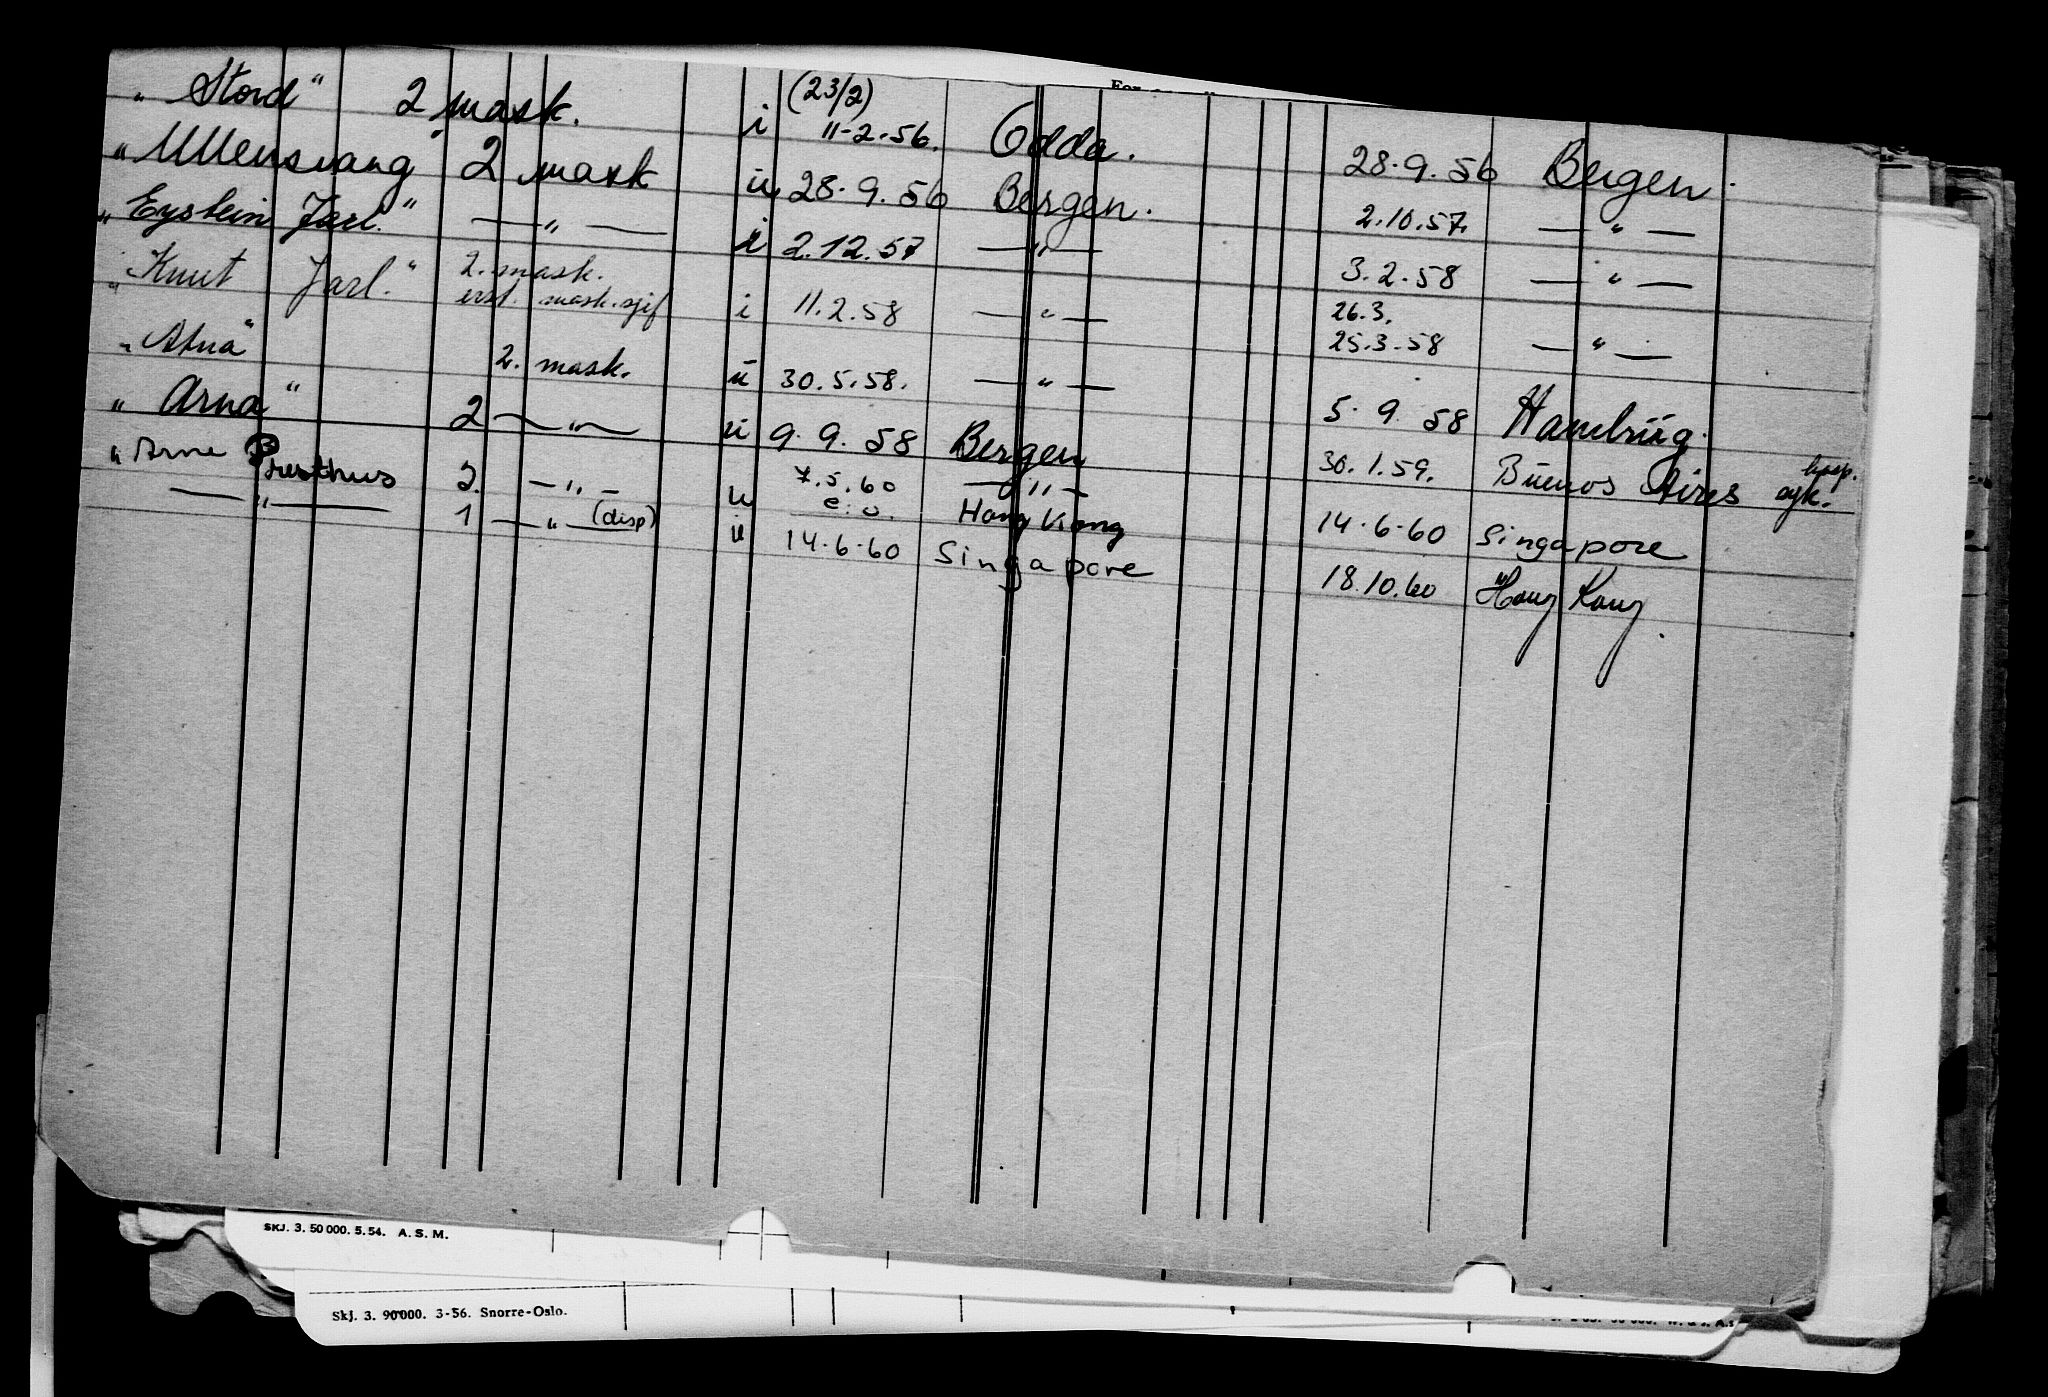 „Stord" 2 mask. i (23/2) 11-2-56. Odda. 28.9.56 Bergen.
„Ullensvang" 2 mask u 28.9.56 Bergen. 2.10.57. —"—
„Eystein Jarl." —"— i 2.12.57 —"— 3.2.58 —"—
„Knut Jarl." 2. mask. erst. mask.sjef i 11.2.58 —"— 26.3. 25.3.58 —"—
„Atna" 2. mask. u 30.5.58. —"— 5.9.58 Hamburg.
„Arna" 2 —"— u 9.9.58 Bergen 30.1.59. Buenos Aires hosp. syk.
„Arne Presthus 2. —"— u 7.5.60 e.o. —"— Hong Kong 14.6.60 Singapore
—"— 1 —"— (disp) u 14.6.60 Singapore 18.10.60 Hong Kong.
SKJ. 3. 50 000. 5.54. A. S. M.
Skj. 3. 90000. 3-56. Snorre-Oslo.